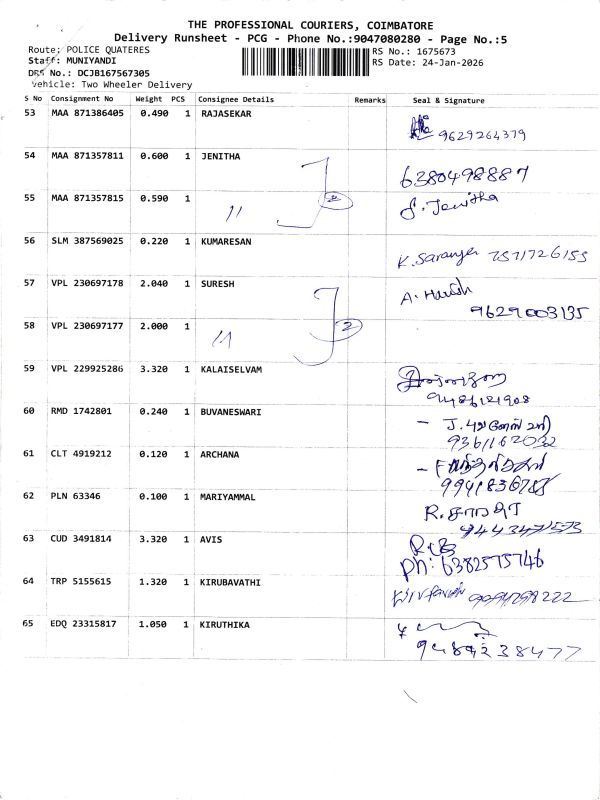 THE PROFESSIONAL COURIERS, COIMBATORE
Delivery Runsheet - PCG - Phone No.:9047080280 - Page No.:5
Route: POLICE QUATERES
RS No.: 1675673
Staff: MUNIYANDI
RS Date: 24-Jan-2026
DRS No.: DCJB167567305
Vehicle: Two Wheeler Delivery
S No Consignment No Weight PCS Consignee Details Remarks Seal & Signature
53 MAA 871386405 0.490 1 RAJASEKAR
9629264379
54 MAA 871357811 0.600 1 JENITHA 6380498887
55 MAA 871357815 0.590 1 11 2 S. Jenitha
56 SLM 387569025 0.220 1 KUMARESAN K. Saranya 7571726155
57 VPL 230697178 2.040 1 SURESH A. Harish
9629003135
58 VPL 230697177 2.000 1 11 2
59 VPL 229925286 3.320 1 KALAISELVAM
9486121908
60 RMD 1742801 0.240 1 BUVANESWARI - J. புவனேஸ்வரி
9361162032
61 CLT 4919212 0.120 1 ARCHANA
62 PLN 63346 0.100 1 MARIYAMMAL R. சாரதா
9443471573
63 CUD 3491814 3.320 1 AVIS
Ph: 6382575746
64 TRP 5155615 1.320 1 KIRUBAVATHI
65 EDQ 23315817 1.050 1 KIRUTHIKA
9489238477